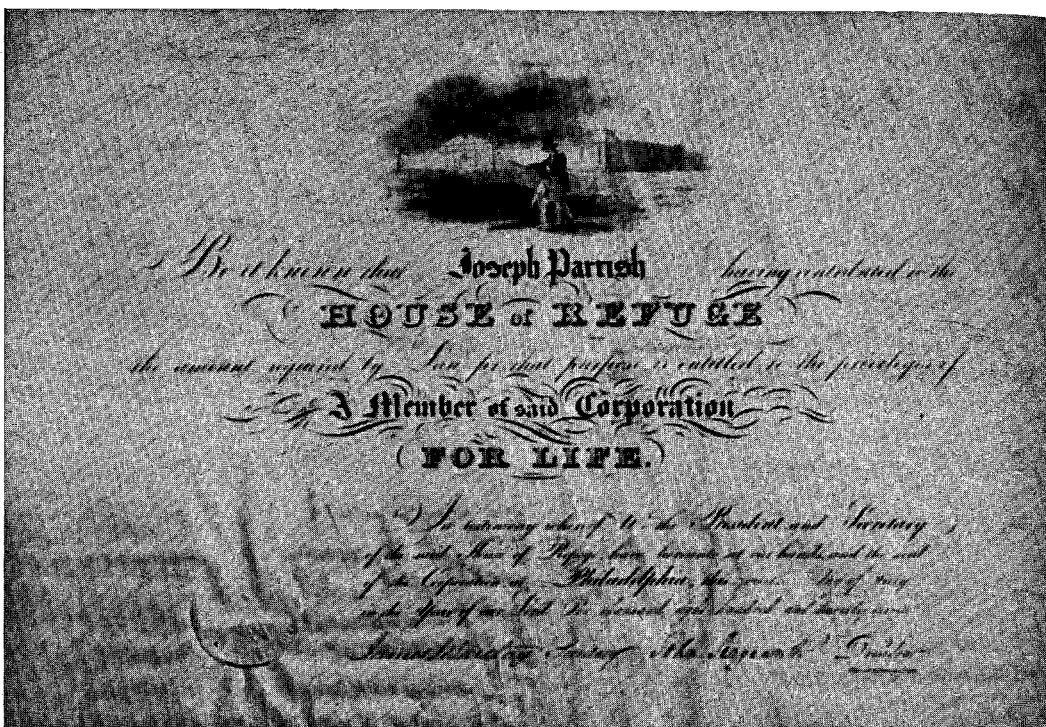 Be it known that Joseph Parrish having contributed to the
HOUSE of REFUGE
the amount required by Law for that purpose is entitled to the privileges of
A Member of said Corporation
FOR LIFE.
In testimony whereof We the President and Secretary
of the said House of Refuge have hereunto set our hands and the seal
of the Corporation at Philadelphia this day of
in the Year of our Lord One thousand eight hundred and twenty